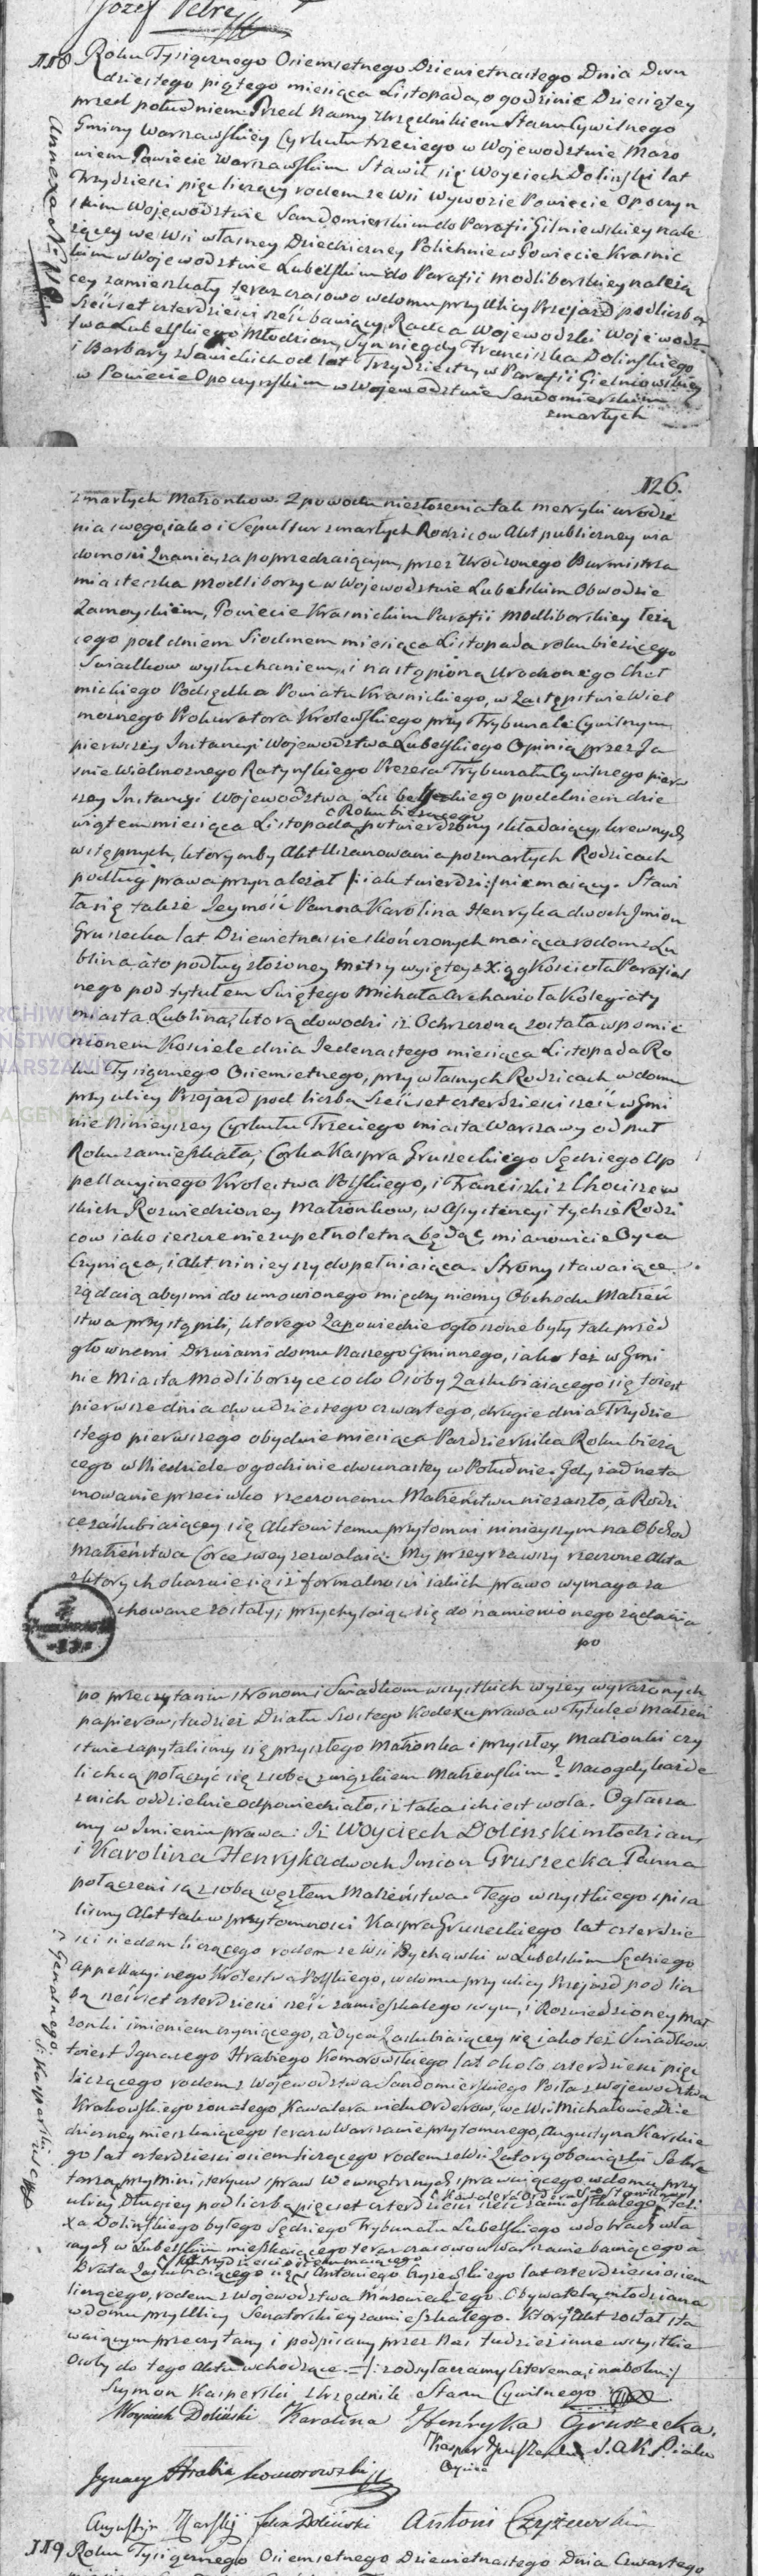 Jozef Petre
118 Roku Tysiącznego Osiemsetnego Dziewietnastego Dnia Dwu
dziestego piątego miesiąca Listopada, o godzinie Dziesiątey
przed południem Przed Namy Urzędnikiem Stanu Cywilnego
Gminy Warszawskiey Cyrkułu trzeciego w Wojewodztwie Mazo
wieckim Powiecie Warszawskim Stawił się Woyciech Dolinski lat
Trzydzieści pięc liczący rodem ze Wsi Wywozie Powiecie Opoczyn
skim Wojewodztwie Sandomierskim do Parafii Gilniewskiey nale
żącey we Wsi własney Dziedziczney Polichnie w Powiecie Krasnic
kim w Wojewodztwie Lubelskim do Parafii Modliborskiey należą
cey zamieszkały teraz czasowo w domu przy Ulicy Przejazd pod liczbą
Sześcset czterdzieści sześc bawiący, Radca Wojewodzki Wojewodz
twa Lubelskiego Młodzian, Syn niegdy Franciszka Dolinskiego
i Barbary z Janickich od lat Trzydziestu w Parafii Gielniowskiey
w Powiecie Opoczynskim w Wojewodztwie Sandomierskim
zmarłych
Annexa No 118
126.
zmarłych Małżonkow. Z powodu niezłożenia tak metryki urodze
nia swego, iako i Sepultur zmarłych Rodzicow Akt publiczney wia
domosci Znania, za poprzedzaiącym, przez Urodzonego Burmistrza
miasteczka Modliborzyc w Wojewodztwie Lubelskim Obwodzie
Zamoyskiem, Powiecie Krasnickim Parafii Modliborskiey leżą
cego pod dniem Siodmem miesiąca Listopada roku bieżącego
Swiadkow wysłuchaniem, i nastąpioną Urodzonego Cheł
mickiego Podsędka Powiatu Krasnickiego, w Zastępstwie Wiel
możnego Prokuratora Krolewskiego przy Trybunale Cywilnym
pierwszey Instancyi Wojewodztwa Lubelskiego Opinią przez Ja
śnie Wielmożnego Ratynskiego Prezesa Trybunału Cywilnego pierw
szey Instancyi Wojewodztwa Lubelskiego pod dniem dzie
wiątem miesiąca Listopada Roku bieżącego potwierdzony składaiący, krewnych
wstępnych, ktorymby Akt Uszanowania po zmarłych Rodzicach
podług prawa przynależał /: iak twierdzi :/ nie maiący. Stawi
ła się także Jeymość Panna Karolina Henryka dwoch Imion
Gruszecka lat Dziewietnascie skończonych maiąca rodem z Lu
blina a to podług złożoney Metry wyiętey z Xiąg Kościoła Parafial
nego pod tytułem Swiętego Michała Archanioła Kolegiaty
miasta Lublina, ktorą dowodzi iż Ochrzczoną została w pomie
nionem Kościele dnia Jedenastego miesiąca Listopada Ro
ku Tysiącznego Osiemsetnego, przy własnych Rodzicach w domu
przy ulicy Przejazd pod liczbą Sześcset czterdziesci sześc w Gmi
nie Ninieyszey Cyrkułu Trzeciego miasta Warszawy od puł
Roku zamieszkała, Corka Kaspra Gruszeckiego Sędziego Ap
pellacyinego Krolestwa Polskiego, i Franciszki z Chociszew
skich Rozwiedzioney Małżonkow, w Assystencyi tychże Rodzi
cow iako ieszcze niezupełnoletna będąc, mianowicie Oyca
Czyniąca, i Akt ninieyszy dopełniaiąca. Strony stawaiące
żądaią abyśmi do umowionego między niemy Obchodu Małżeń
stwa przystąpili, ktorego Zapowiedzie ogłoszone były tak przed
głownemi Drzwiami domu Naszego Gminnego, iako też w Gmi
nie Miasta Modliborzyce co do Osoby Zaslubiaiącego się toiest
pierwsze dnia dwudziestego czwartego, drugie dnia Trzydzie
stego pierwszego obydwie miesiąca Pazdziernika Roku bieżą
cego w Niedziele o godzinie dwunastey w Południe. Gdy żadne ta
mowanie przeciwko rzeczonemu Małżeństwu niezaszło, a Rodzi
ce zaślubiaiącey się Aktowi temu przytomni ninieyszym na Obchod
Małżeństwa Corce swey zezwalaią. My przeyrzawszy rzeczone Akta
z ktorych okazuie się iż formalnosci iakich prawo wymaga za
chowane zostały, przychylaiąc się do namienionego żądania
po
po przeczytaniu stronom i Swiadkom wszystkich wyżey wyrażonych
papierow, tudzież Działu Szostego Kodexu prawa w Tytule o Małżeń
stwie zapytalismy się przyszłego Małżonka i przyszłey Małżonki czy
li chcą połączyć się z sobą związkiem Małżenskim? Na co gdy każde
z nich oddzielnie odpowiedziało, iż taka ich iest wola. Ogłasza
my w Imieniu prawa: Iż Woyciech Dolinski młodzian,
i Karolina Henryka dwoch Imion Gruszecka Panna
połączeni są z sobą węzłem Małżeństwa. Tego wszystkiego spisa
lismy Akt tak w przytomnosci Kaspra Gruszeckiego lat czterdzie
sci siedem liczącego rodem ze Wsi Bychawki w Lubelskim Sędziego
Appellacyinego Krolestwa Polskiego, w domu przy ulicy Przejazd pod licz
bą sześcset czterdziesci sześc zamieszkałego swym, i Rozwiedzioney Mał
żonki imieniem czyniącego, a Oyca Zaslubiaiącey się iako też Swiadkow
toiest Ignacego Hrabiego Komorowskiego lat około czterdziesci pięc
liczącego rodem z Wojewodztwa Sandomierskiego Posła z Wojewodztwa
Krakowskiego Kawalera wielu Orderow, we Wsi Michałowie Dzie
dziczney mieszkaiącego teraz w Warszawie przytomnego, Augustyna Karskie
go lat czterdziesci osiem liczącego rodem ze Wsi Zatory obowiązki Sekre
tarza przy Ministeryum spraw Wewnętrznych sprawuiącego w domu przy
ulicy Długiey pod liczbą pięcset czterdziesci sześc zamieszkałego, Feli
xa Dolinskiego byłego Sędziego Trybunału Lubelskiego w dobrach wła
snych w Lubelskim mieszkaiącego teraz czasowo w Warszawie bawiącego a
Brata Zaslubiaiącego się, Antoniego Czyżewskiego lat czterdziesci osiem
liczącego, rodem z Wojewodztwa Mazowieckiego Obywatela, młodziana
w domu przy Ulicy Senatorskiey zamieszkałego. Ktory Akt został sta
waiącym przeczytany i podpisany przez Nas tudzież inne wszystkie
Osoby do tego Aktu wchodzące.
Szymon Kasperski Urzędnik Stanu Cywilnego
Woyciech Doliński Karolina Henryka Gruszecka.
Kasper Gruszecki S. A. K. P.
Oyciec
Ignacy Hrabia Komorowski
Augustyn Karski Felix Doliński Antoni Czyżewski
119 Roku Tysiącznego Osiemsetnego Dziewietnastego Dnia Czwartego